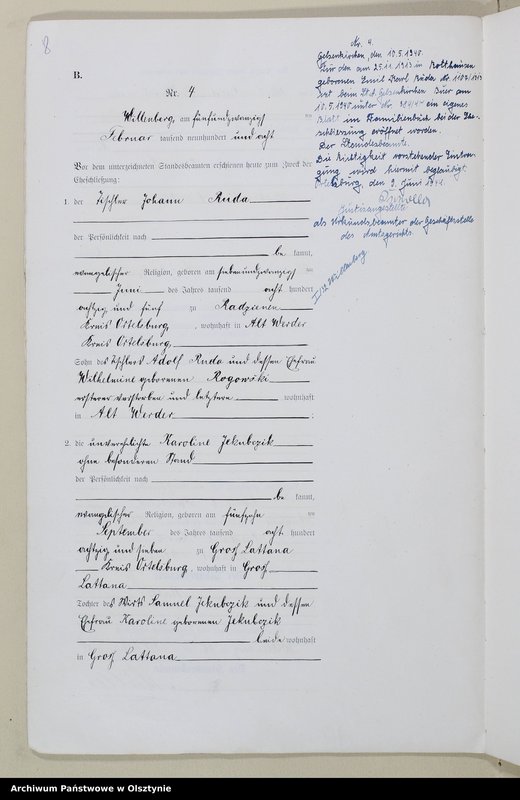 8
B.
Nr. 4
Willenberg, am fünfundzwanzigs ten
Februar tausend neunhundert und acht
Vor dem unterzeichneten Standesbeamten erschienen heute zum Zweck der
Eheschließung:
1. der Tischler Johann Ruda
der Persönlichkeit nach
be kannt,
evangelischer Religion, geboren am siebenundzwanzigs ten
Juni des Jahres tausend acht hundert
achtzig und fünf zu Radzienen
Kreis Ortelsburg, wohnhaft in Alt Werder
Kreis Ortelsburg,
Sohn des Tischlers Adolf Ruda und dessen Ehefrau
Wilhelmine geborenen Rogowski
ersterer verstorben und letztere wohnhaft
in Alt Werder
2. die unverehelichte Karoline Jekubczik
ohne besonderen Stand
der Persönlichkeit nach
be kannt,
evangelischer Religion, geboren am fünfzehn ten
September des Jahres tausend acht hundert
achtzig und sieben zu Groß Lattana
Kreis Ortelsburg, wohnhaft in Groß
Lattana
Tochter des Wirts Samuel Jekubczik und dessen
Ehefrau Karoline geborenen Jekubczik
beide wohnhaft
in Groß Lattana
Nr. 4.
Gelsenkirchen, den 10.5.1940.
Für den am 25.11.1913 in Rotthausen
geborenen Emil Karl Ruda Nr. 1107/1913
ist beim St.A. Gelsenkirchen Buer am
10.5.1940 unter Nr. ein eigenes
Blatt im Familienbuch bei der Ehe-
schliessung eröffnet worden.
Der Standesbeamte.
Die Richtigkeit vorstehender Eintra-
gung wird hiermit beglaubigt.
Ortelsburg, den 9. Juni 1941.
Justizangestellte
als Urkundsbeamter der Geschäftsstelle
des Amtsgerichts.
Willenberg
Archiwum Państwowe w Olsztynie